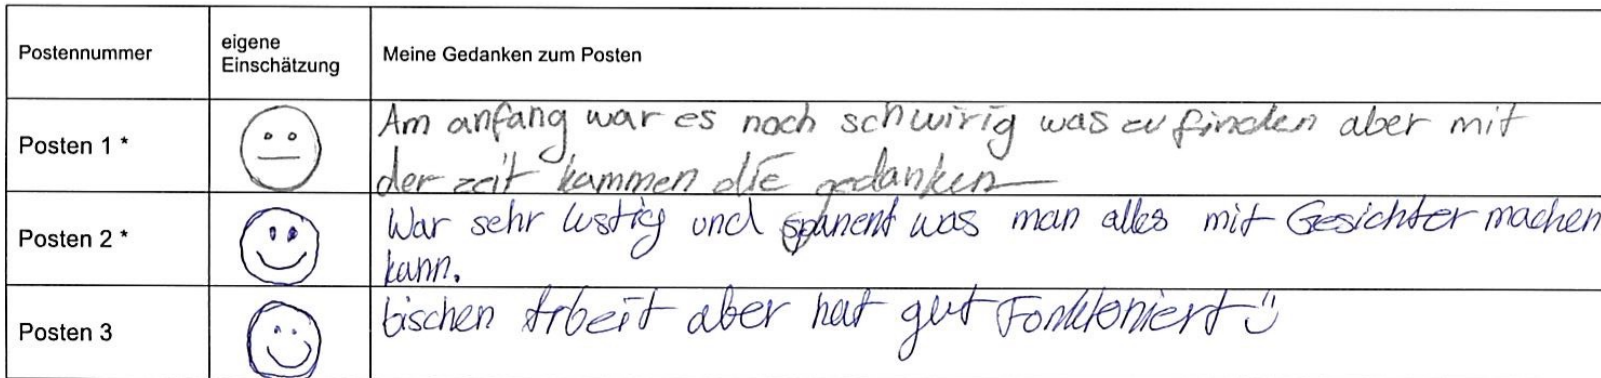 Postennummer eigene Einschätzung Meine Gedanken zum Posten
Posten 1 * Am anfang war es noch schwirig was zu finden aber mit
der zeit kammen die gedanken
Posten 2 * War sehr lustig und spanent was man alles mit Gesichter machen
kann.
Posten 3 bischen Arbeit aber hat gut Fonktoniert